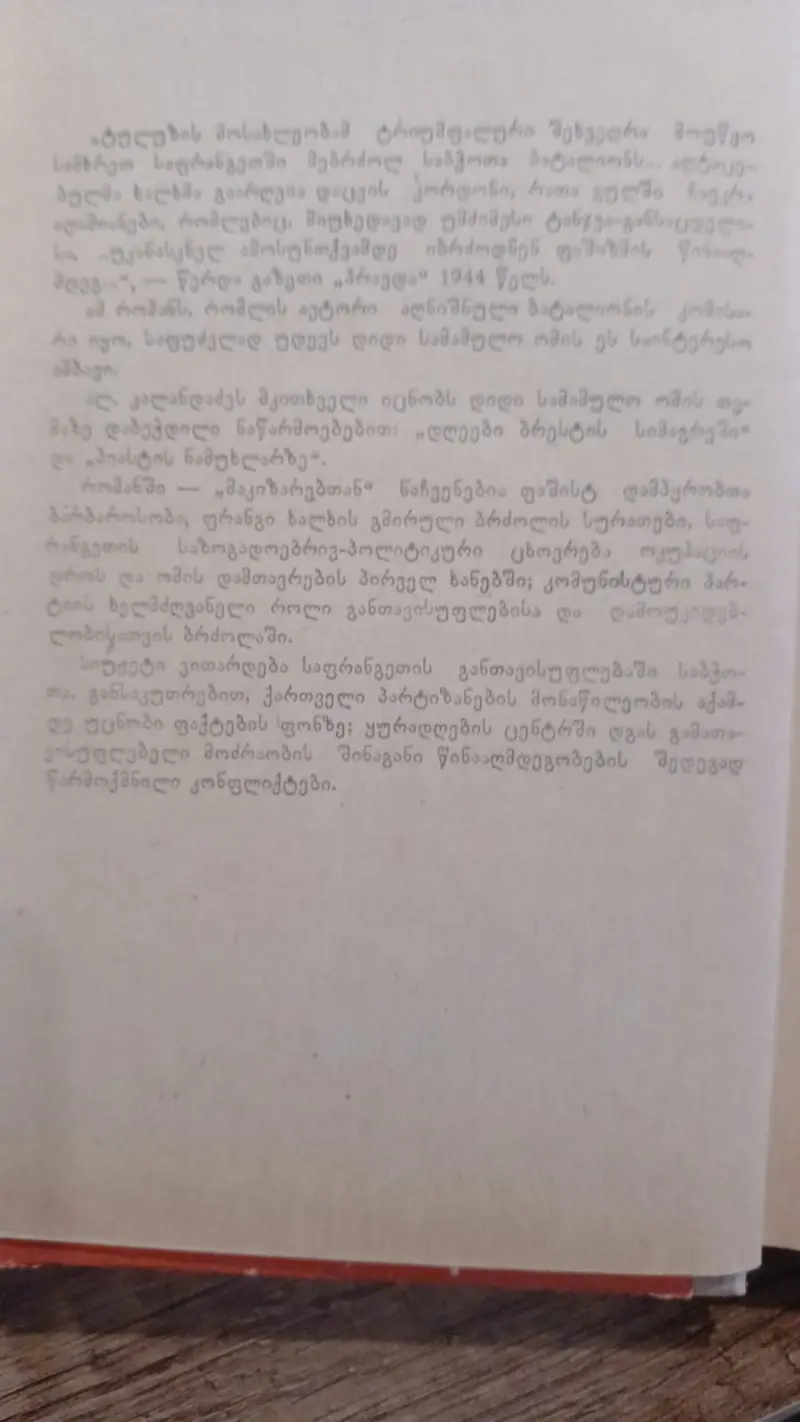 „ტულუზის მოსახლეობამ ტრიუმფალური შეხვედრა მოუწყო
სამხრეთ საფრანგეთში მებრძოლ საბჭოთა ბატალიონს... აღტაცე-
ბულმა ხალხმა გაარღვია დაცვის კორდონი, რათა გულში ჩაეკრა
ადამიანები, რომლებიც, მიუხედავად უმძიმესი ტანჯვა-განსაცდელი-
სა, უკანასკნელ ამოსუნთქვამდე იბრძოდნენ ფაშიზმის წინააღ-
მდეგ...“, — წერდა გაზეთი „პრავდა“ 1944 წელს.
ამ რომანს, რომლის ავტორი აღნიშნული ბატალიონის კომისა-
რი იყო, საფუძვლად უდევს დიდი სამამულო ომის ეს საინტერესო
ამბავი.
ალ. კალანდაძეს მკითხველი იცნობს დიდი სამამულო ომის თე-
მაზე დაბეჭდილი ნაწარმოებებით: „დღეები ბრესტის სიმაგრეში“
და „პიასტის ნამუხლარზე“.
რომანში — „მაკიზარებთან“ ნაჩვენებია ფაშისტ დამპყრობთა
ბარბაროსობა, ფრანგი ხალხის გმირული ბრძოლის სურათები, საფ-
რანგეთის საზოგადოებრივ-პოლიტიკური ცხოვრება ოკუპაციის
დროს და ომის დამთავრების პირველ ხანებში; კომუნისტური პარ-
ტიის ხელმძღვანელი როლი განთავისუფლებისა და დამოუკიდებ-
ლობისათვის ბრძოლაში.
სიუჟეტი ვითარდება საფრანგეთის განთავისუფლებაში საბჭო-
თა, განსაკუთრებით, ქართველი პარტიზანების მონაწილეობის აქამ-
დე უცნობი ფაქტების ფონზე; ყურადღების ცენტრში დგას გამათა-
ვისუფლებელი მოძრაობის შინაგანი წინააღმდეგობების შედეგად
წარმოქმნილი კონფლიქტები.